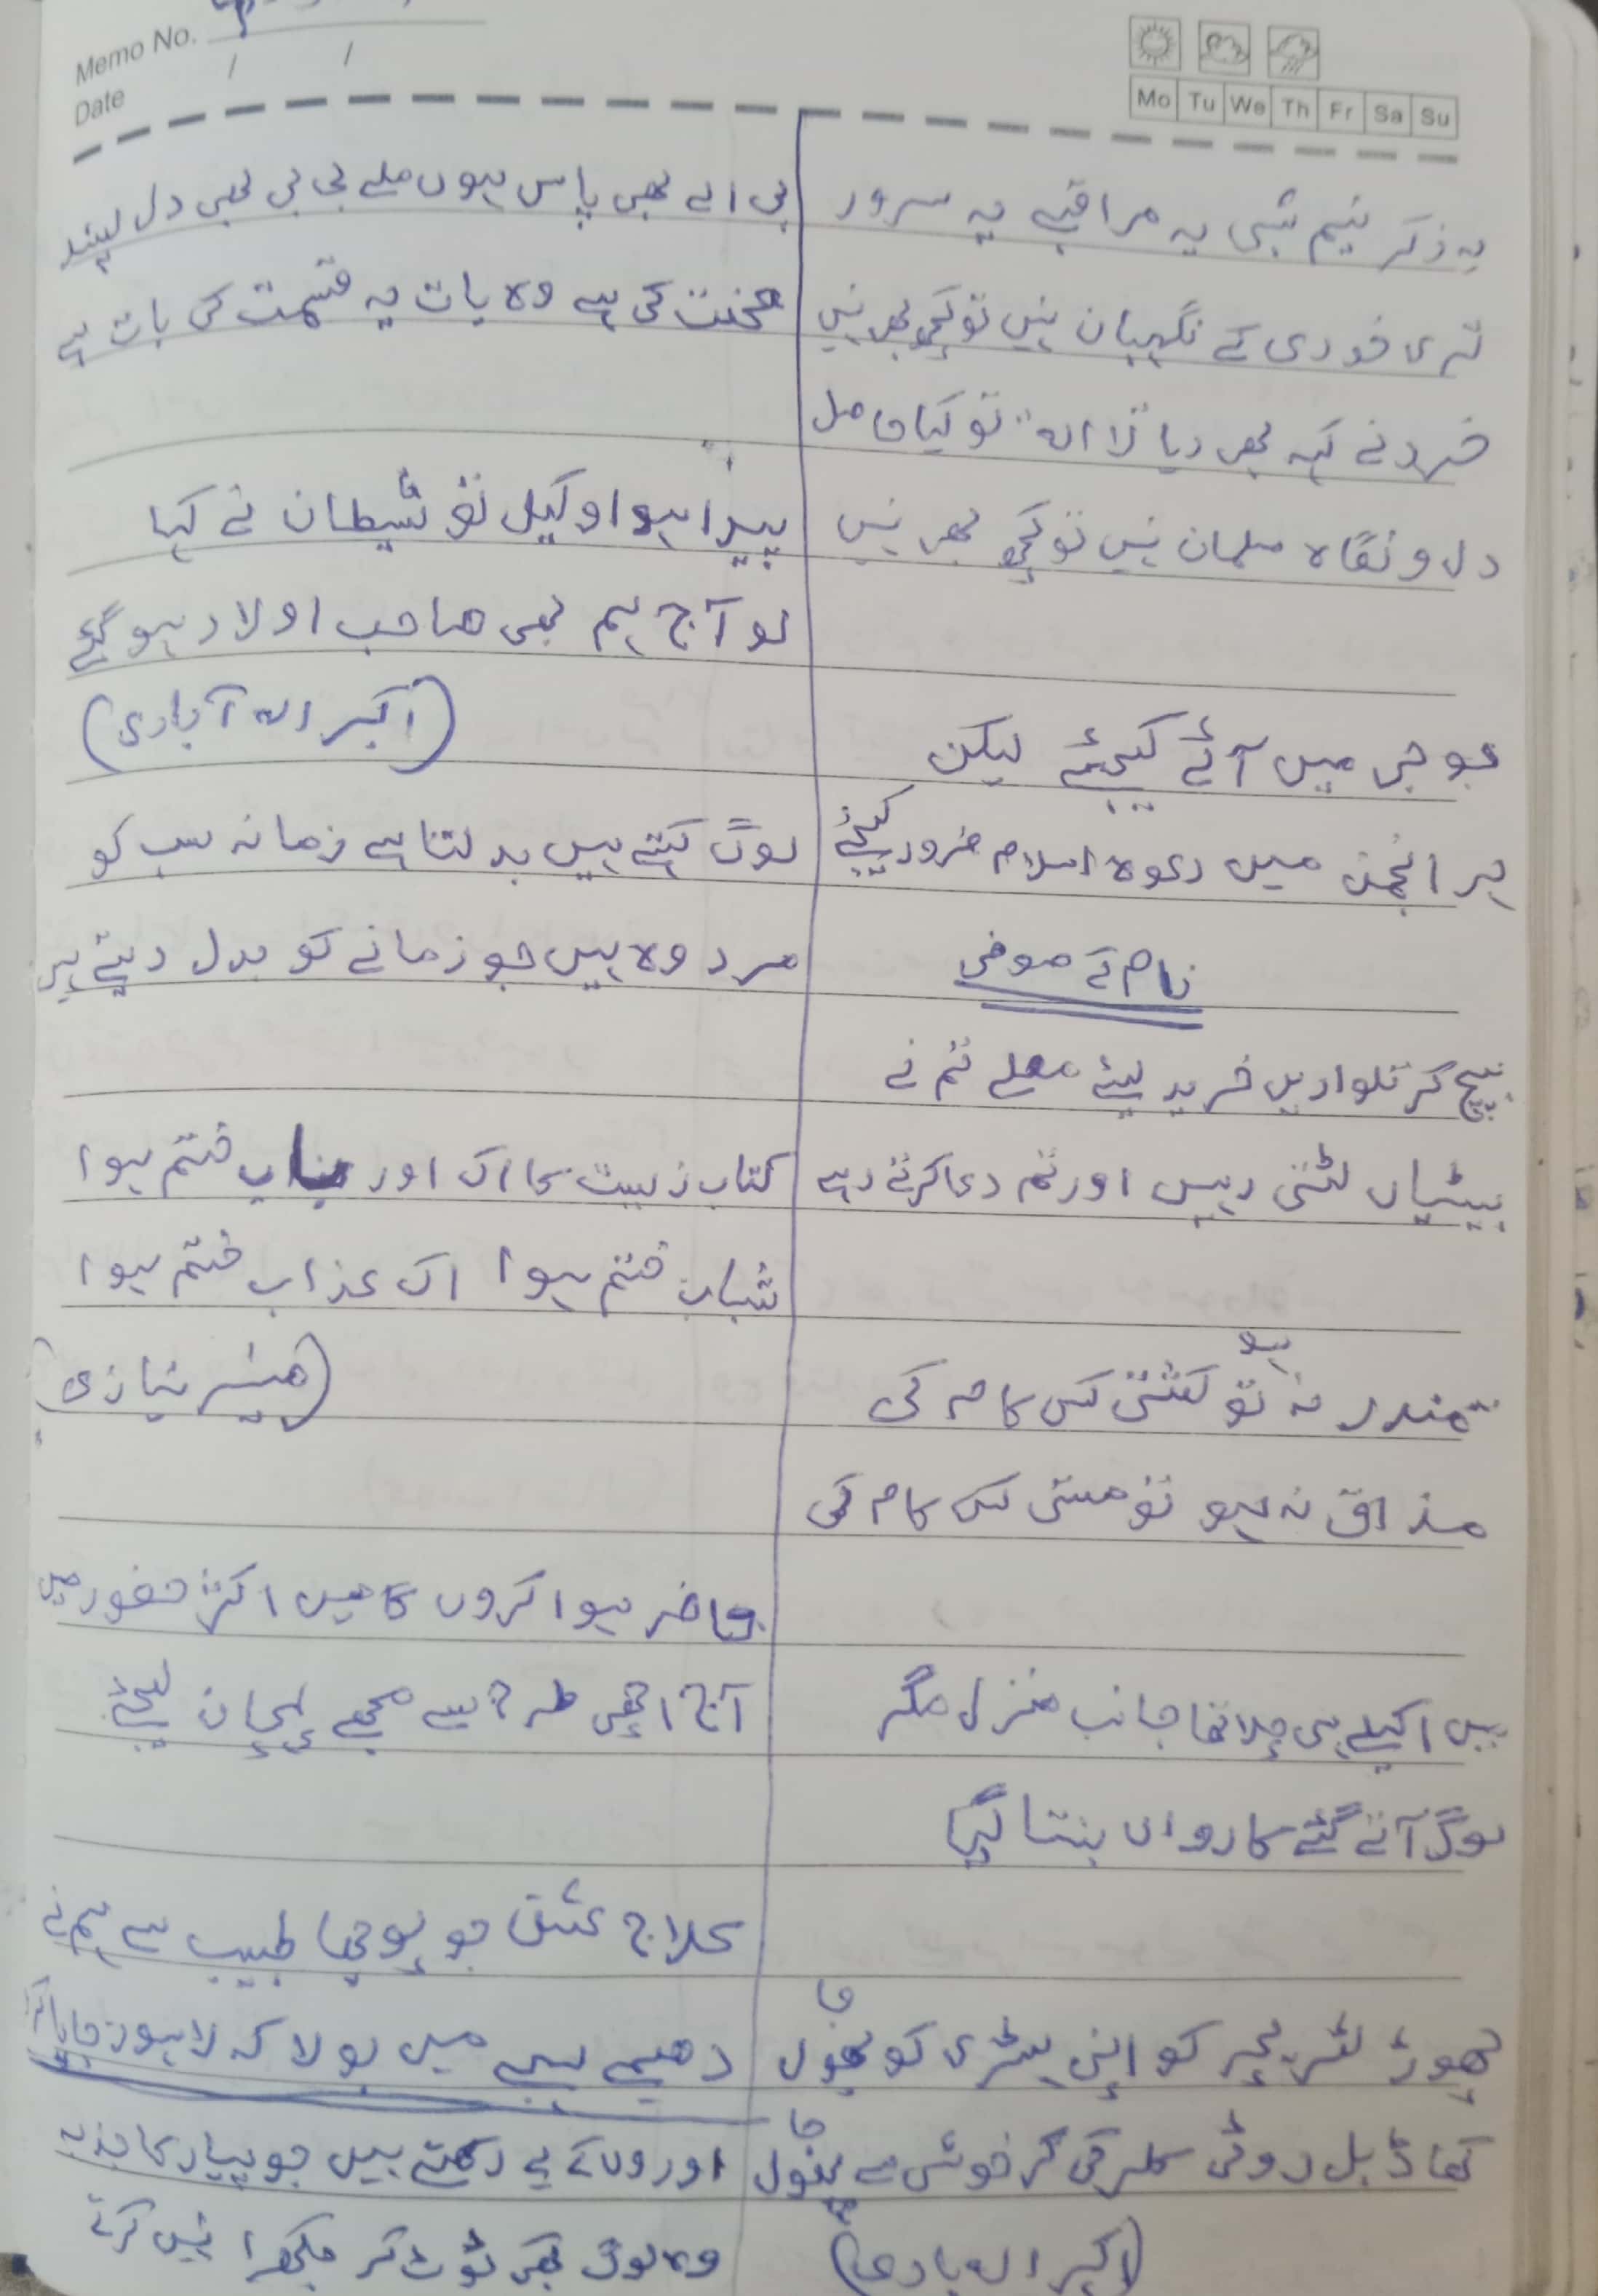 Memo No.
Date / /
Mo Tu We Th Fr Sa Su
یہ ذکر نیم شبی یہ مراقبے یہ سرور
تری خودی کے نگہبان نہیں تو کچھ بھی نہیں
خرد نے کہہ بھی دیا "لا الہ" تو کیا حاصل
دل و نگاہ مسلمان نہیں تو کچھ بھی نہیں
جو جی میں آئے کیجئے لیکن
ہر انجمن میں دعوہ اسلام ضرور کیجئے
نام کے صوفی
بیچ کر تلواریں خرید لیئے مصلے تم نے
بیٹیاں لٹتی رہیں اور تم دعا کرتے رہے
سمندر نہ ہو تو کشتی کس کام کی
مذاق نہ ہو تو مستی کس کام کی
میں اکیلے ہی چلا تھا جانب منزل مگر
لوگ آتے گئے کارواں بنتا گیا
چھوڑ لٹریچر کو اپنی ہسٹری کو بھول جا
کھا ڈبل روٹی کلرکی کر خوشی سے پھول جا
(اکبر الہ بادی)
بی اے بھی پاس ہوں ملے بی بی بھی دل پسند
محنت کی ہے وہ بات یہ قسمت کی بات ہے
پیدا ہوا وکیل تو شیطان نے کہا
لو آج ہم بھی صاحب اولاد ہو گئے
(اکبر الہ آبادی)
لوگ کہتے ہیں بدلتا ہے زمانہ سب کو
مرد وہ ہیں جو زمانے کو بدل دیتے ہیں
کتاب زیست کا اک اور باب ختم ہوا
شباب ختم ہوا اک عذاب ختم ہوا
(منیر نیازی)
حاضر ہوا کروں گا میں اکثر حضور میں
آج اچھی طرح سے مجھے پہچان لیجئے
علاج عشق جو پوچھا طبیب سے ہم نے
دھیمے لہجے میں بولا کہ لاہور جایا کر
اوروں کے لیے رکھتے ہیں جو پیار کا جذبہ
وہ لوگ بھی ٹوٹ کر بکھرا نہیں کرتے